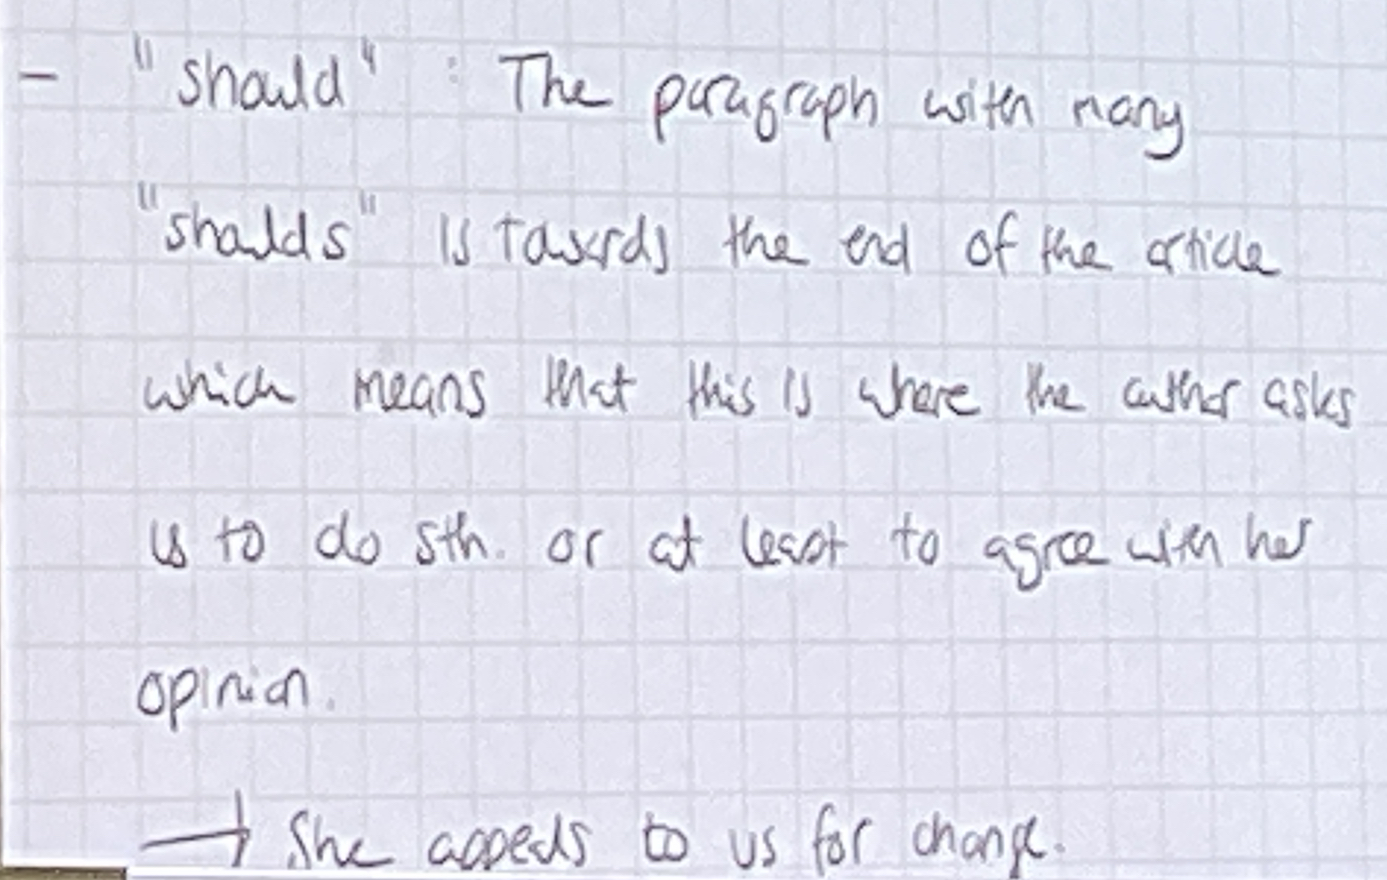 - "should" : The paragraph with many
"shoulds" is towards the end of the article
which means that this is where the author asks
us to do sth. or at least to agree with her
opinion.
→ She appeals to us for change.